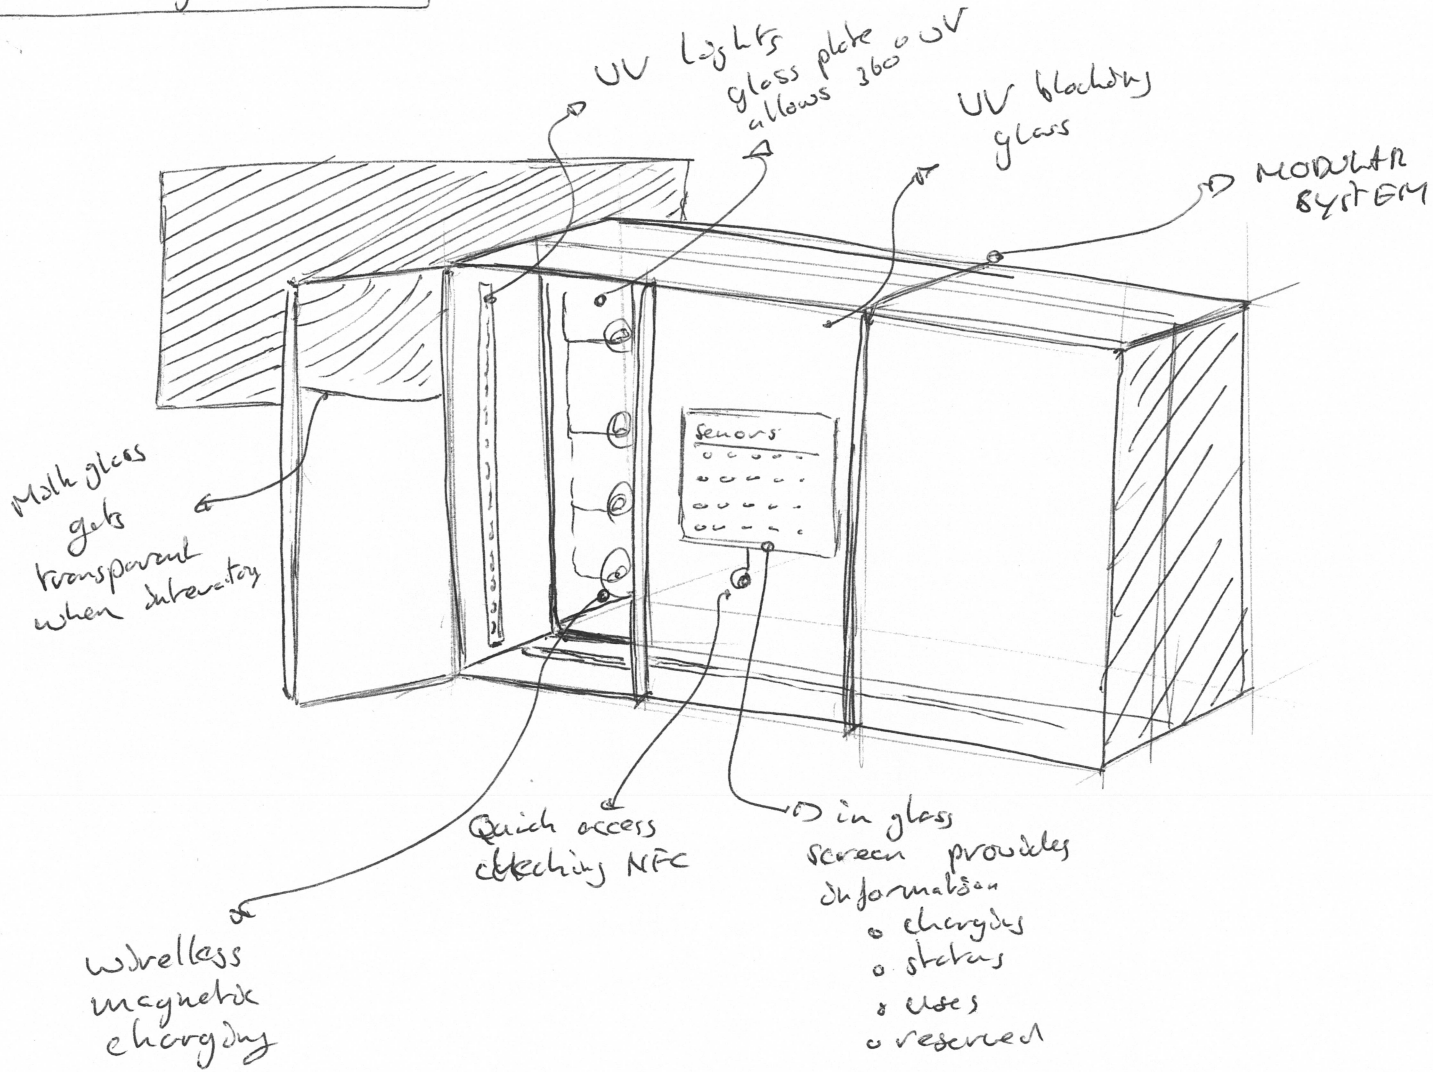 UV Lights
glass plate
allows 360° UV
UV blocking
glass
MODULAR
SYSTEM
Sensors
Milk glass
gets
transparent
when interacting
Quick access
NFC
in glass
screen provides
information
o charging
o status
o uses
o reserved
wirelless
magnetic
charging